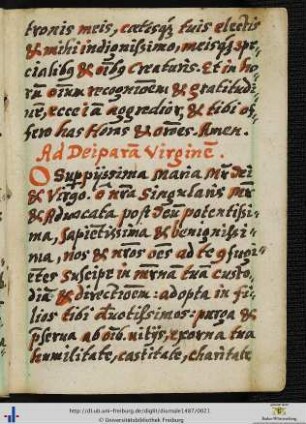 tronis meis, cæterisq; tuis electis
& mihi indignissimo, meisq; spe-
cialibꝰ & oībꝰ creaturis. Et in ho-
rū oīum recognīoem & gratitudi-
nē, ecce iā aggredior, & tibi of-
fero has Hōras & orōes. Amen.
Ad Deiparā Virginē.
O Suppyssima Maria Mr̄ Dei
& Virgo. ō nr̄a Singularis
& Aduocata post Deū potentissi-
ma, Sapientissima & benignissi-
ma, nos & nr̄os oēs ad te ꝯfugi-
ētes Suscipe in mr̄nā tuā custo-
diā & directionem: adopta in fi-
lios tibi d̄uotissimos: purga &
p̄serua ab oīb. vitijs, exorna tua
humilitate, castitate, charitate
http://dl.ub.uni-freiburg.de/diglit/diurnale1487/0021
© Universitätsbibliothek Freiburg
Baden-Württemberg